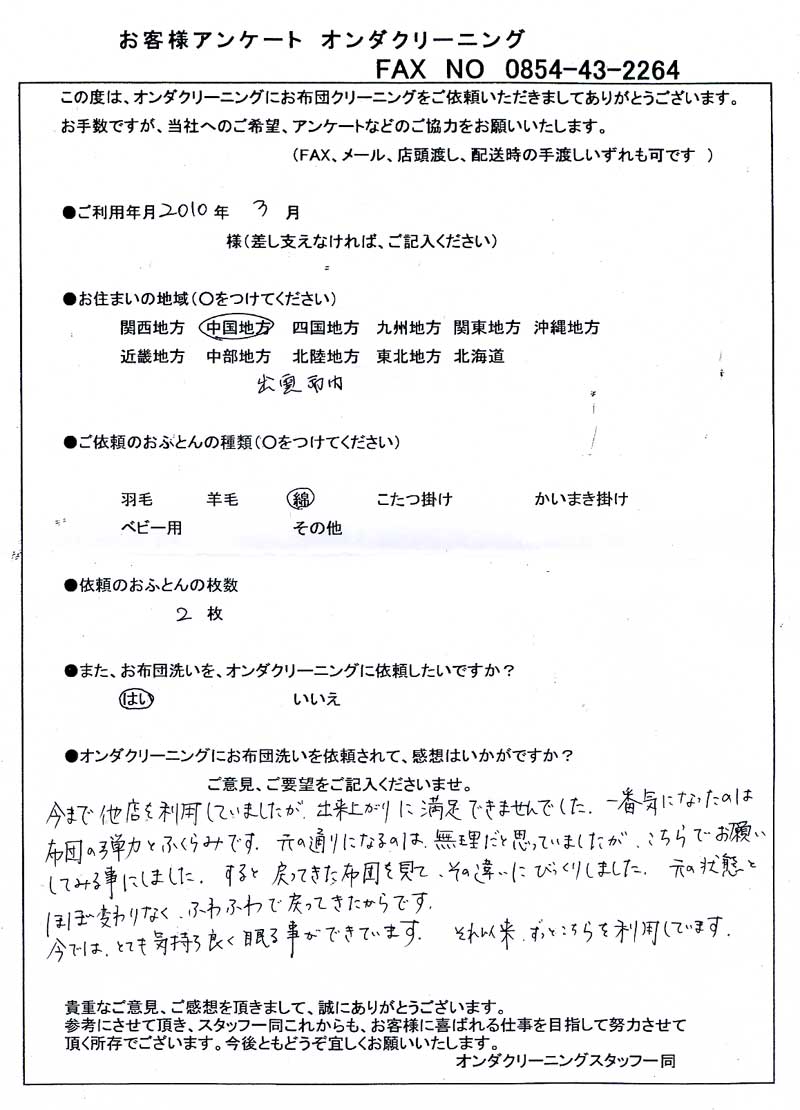 お客様アンケート オンダクリーニング
FAX NO 0854-43-2264
この度は、オンダクリーニングにお布団クリーニングをご依頼いただきましてありがとうございます。
お手数ですが、当社へのご希望、アンケートなどのご協力をお願いいたします。
（FAX、メール、店頭渡し、配送時の手渡しいずれも可です ）
●ご利用年月2010年 3 月
様（差し支えなければ、ご記入ください）
●お住まいの地域（〇をつけてください）
関西地方 中国地方 四国地方 九州地方 関東地方 沖縄地方
近畿地方 中部地方 北陸地方 東北地方 北海道
出雲市内
●ご依頼のおふとんの種類（〇をつけてください）
羽毛 羊毛 綿 こたつ掛け かいまき掛け
ベビー用 その他
●依頼のおふとんの枚数
2 枚
●また、お布団洗いを、オンダクリーニングに依頼したいですか？
はい いいえ
●オンダクリーニングにお布団洗いを依頼されて、感想はいかがですか？
ご意見、ご要望をご記入くださいませ。
今まで他店を利用していましたが、出来上がりに満足できませんでした。一番気になったのは
布団の弾力とふくらみです。元の通りになるのは、無理だと思っていましたが、こちらでお願い
してみる事にしました。すると戻ってきた布団を見て、その違いにびっくりしました。元の状態と
ほぼ変わりなく、ふわふわで戻ってきたからです。
今では、とても気持ち良く眠る事ができています。それ以来、ずっとこちらを利用しています。
貴重なご意見、ご感想を頂きまして、誠にありがとうございます。
参考にさせて頂き、スタッフ一同これからも、お客様に喜ばれる仕事を目指して努力させて
頂く所存でございます。今後ともどうぞ宜しくお願いいたします。
オンダクリーニングスタッフ一同